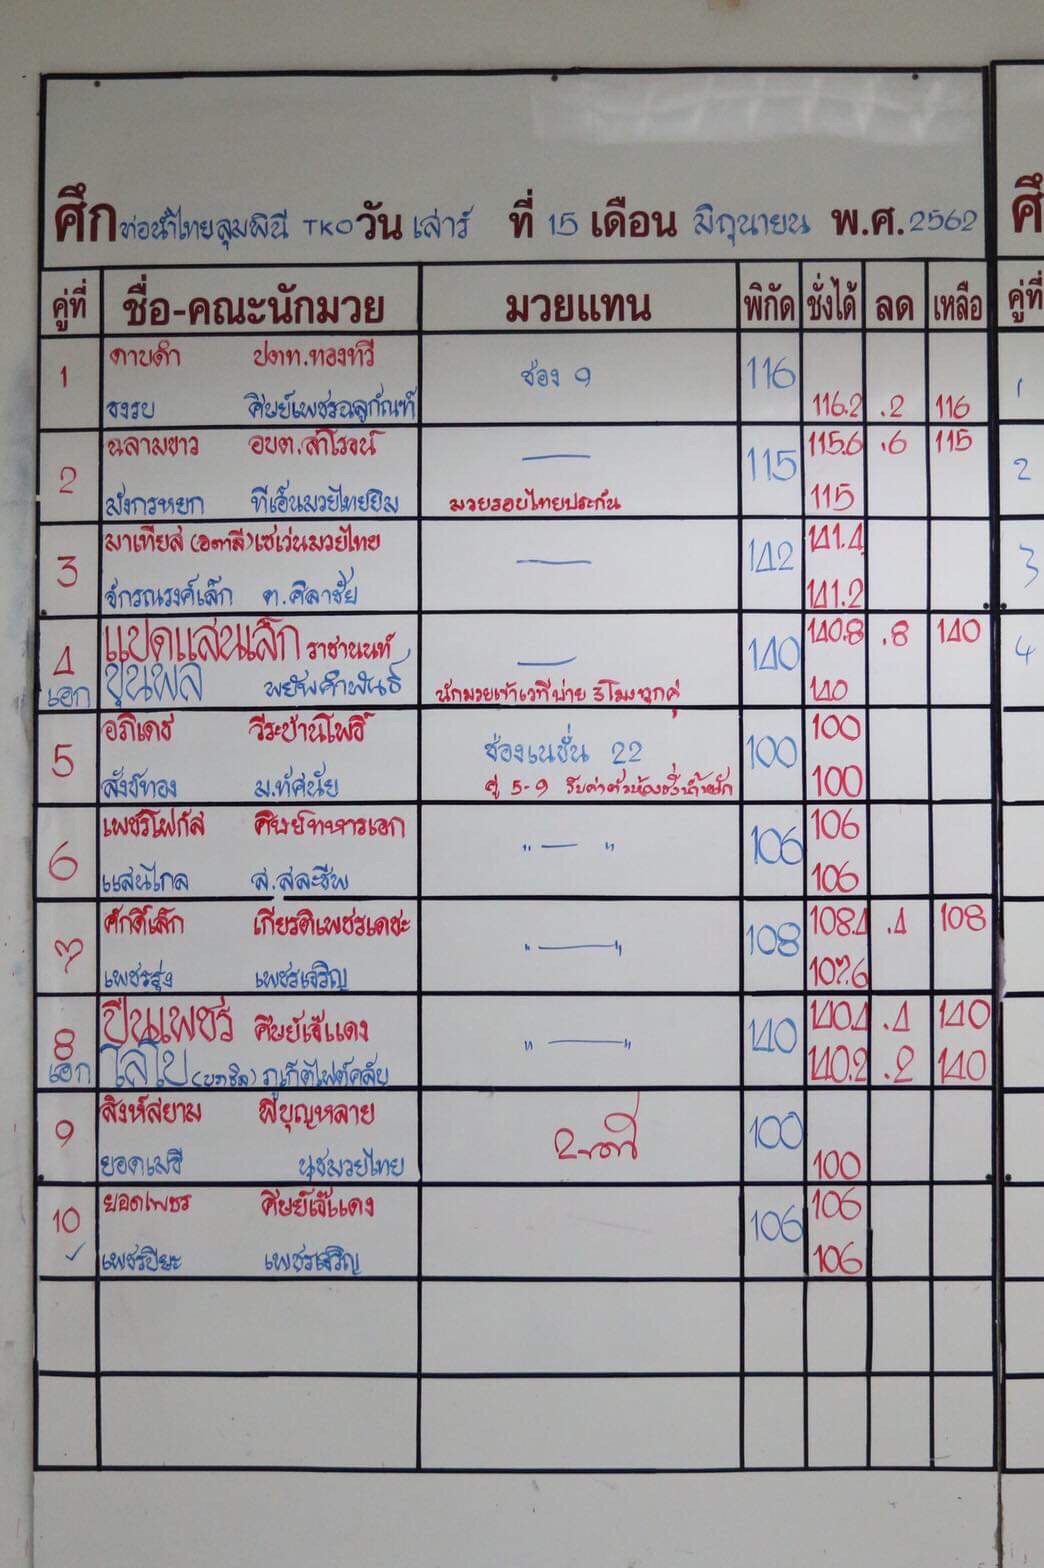 ศึก ท่อน้ำไทยลุมพินี TKO วัน เสาร์ ที่ 15 เดือน มิถุนายน พ.ศ. 2562
คู่ที่ ชื่อ-คณะนักมวย มวยแทน พิกัด ชั่งได้ ลด เหลือ
1 ดาบดำ ปตท.ทองทวี ช่อง 9 116
จงรบ ศิษย์เพชร 116.2 .2 116
2 ฉลามขาว อบต.สำโรงน์ 115 115.6 .6 115
มังกรหยก ทีเอ็นมวยไทยยิม มวยรอยไทยประกัน 115
3 มาเทียส (อตาลี) เซเว่นมวยไทย 142 141.4
จักรณรงค์เล็ก ต.ศิลาชัย 141.2
4 แปดแสนเล็ก ราชานนท์ 140 140.8 .8 140
เอก ขุนพล พยัพคำพันธ์ นักมวยเข้าเวทีบ่าย 3 โมงทุกคู่ 140
5 อภิเดช วีระป่านโพธิ์ ช่องเนชั่น 22 100 100
สังข์ทอง ม.ทัศนัย คู่ 5-9 รับค่าตัวห้อง 100
6 เพชรโฟกัส ศิษย์ทหารเอก " — " 106 106
แสนไกล ส.สละชีพ 106
7 ศักดิ์เล็ก เกียรติเพชรเดชะ " — " 108 108.4 .4 108
เพชรรุ่ง เพชรเจริญ 107.6
8 ปืนเพชร ศิษย์เจ๊แดง " — " 140 140.4 .4 140
เอก (บราซิล) ภูเก็ตไฟต์คลับ 140.2 .2 140
9 สิงห์สยาม พีบุญหลาย 100
ยอดเมธี นุชมวยไทย 100
10 ยอดเพชร ศิษย์เจ๊แดง 106 106
เพชรปิยะ เพชรเจริญ 106
ศึ
คู่ที่
1
2
3
4